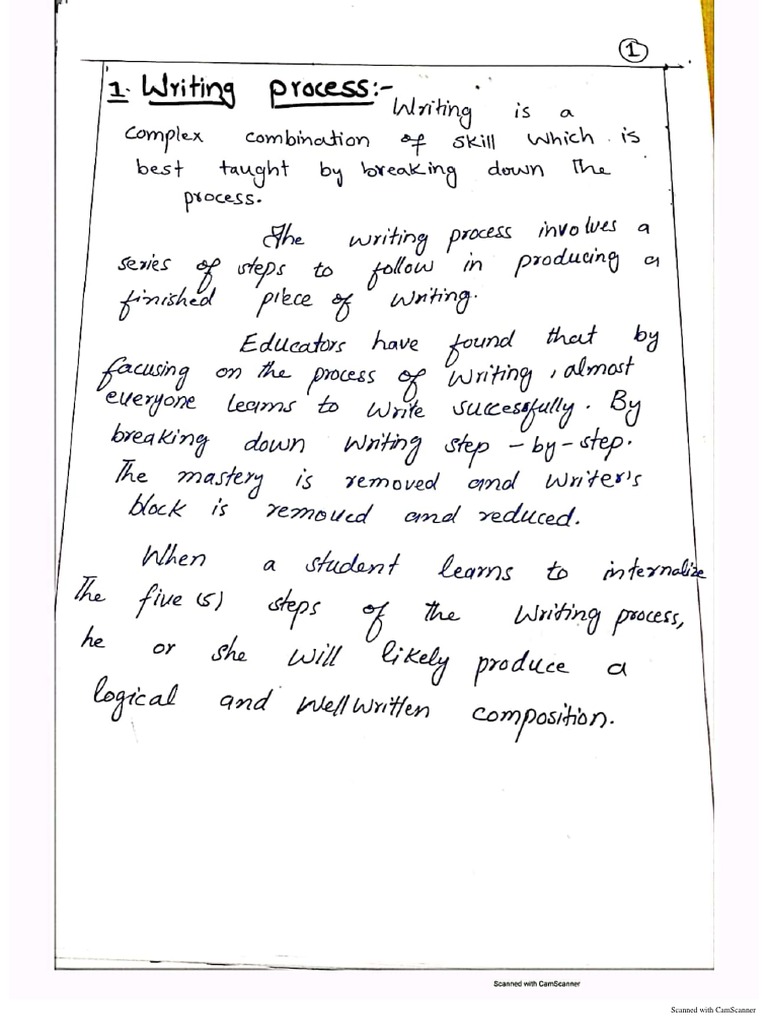 1
1. Writing process:-
Writing is a
complex combination of skill which is
best taught by breaking down The
process.
The writing process involves a
series of steps to follow in producing a
finished piece of writing.
Educators have found that by
facusing on the process of writing, almost
everyone learns to write successfully. By
breaking down writing step - by - step.
The mastery is removed and writer's
block is removed and reduced.
When a student learns to internalize
The five (5) steps of the writing process,
he or she will likely produce a
logical and wellwritten composition.
Scanned with CamScanner
Scanned with CamScanner